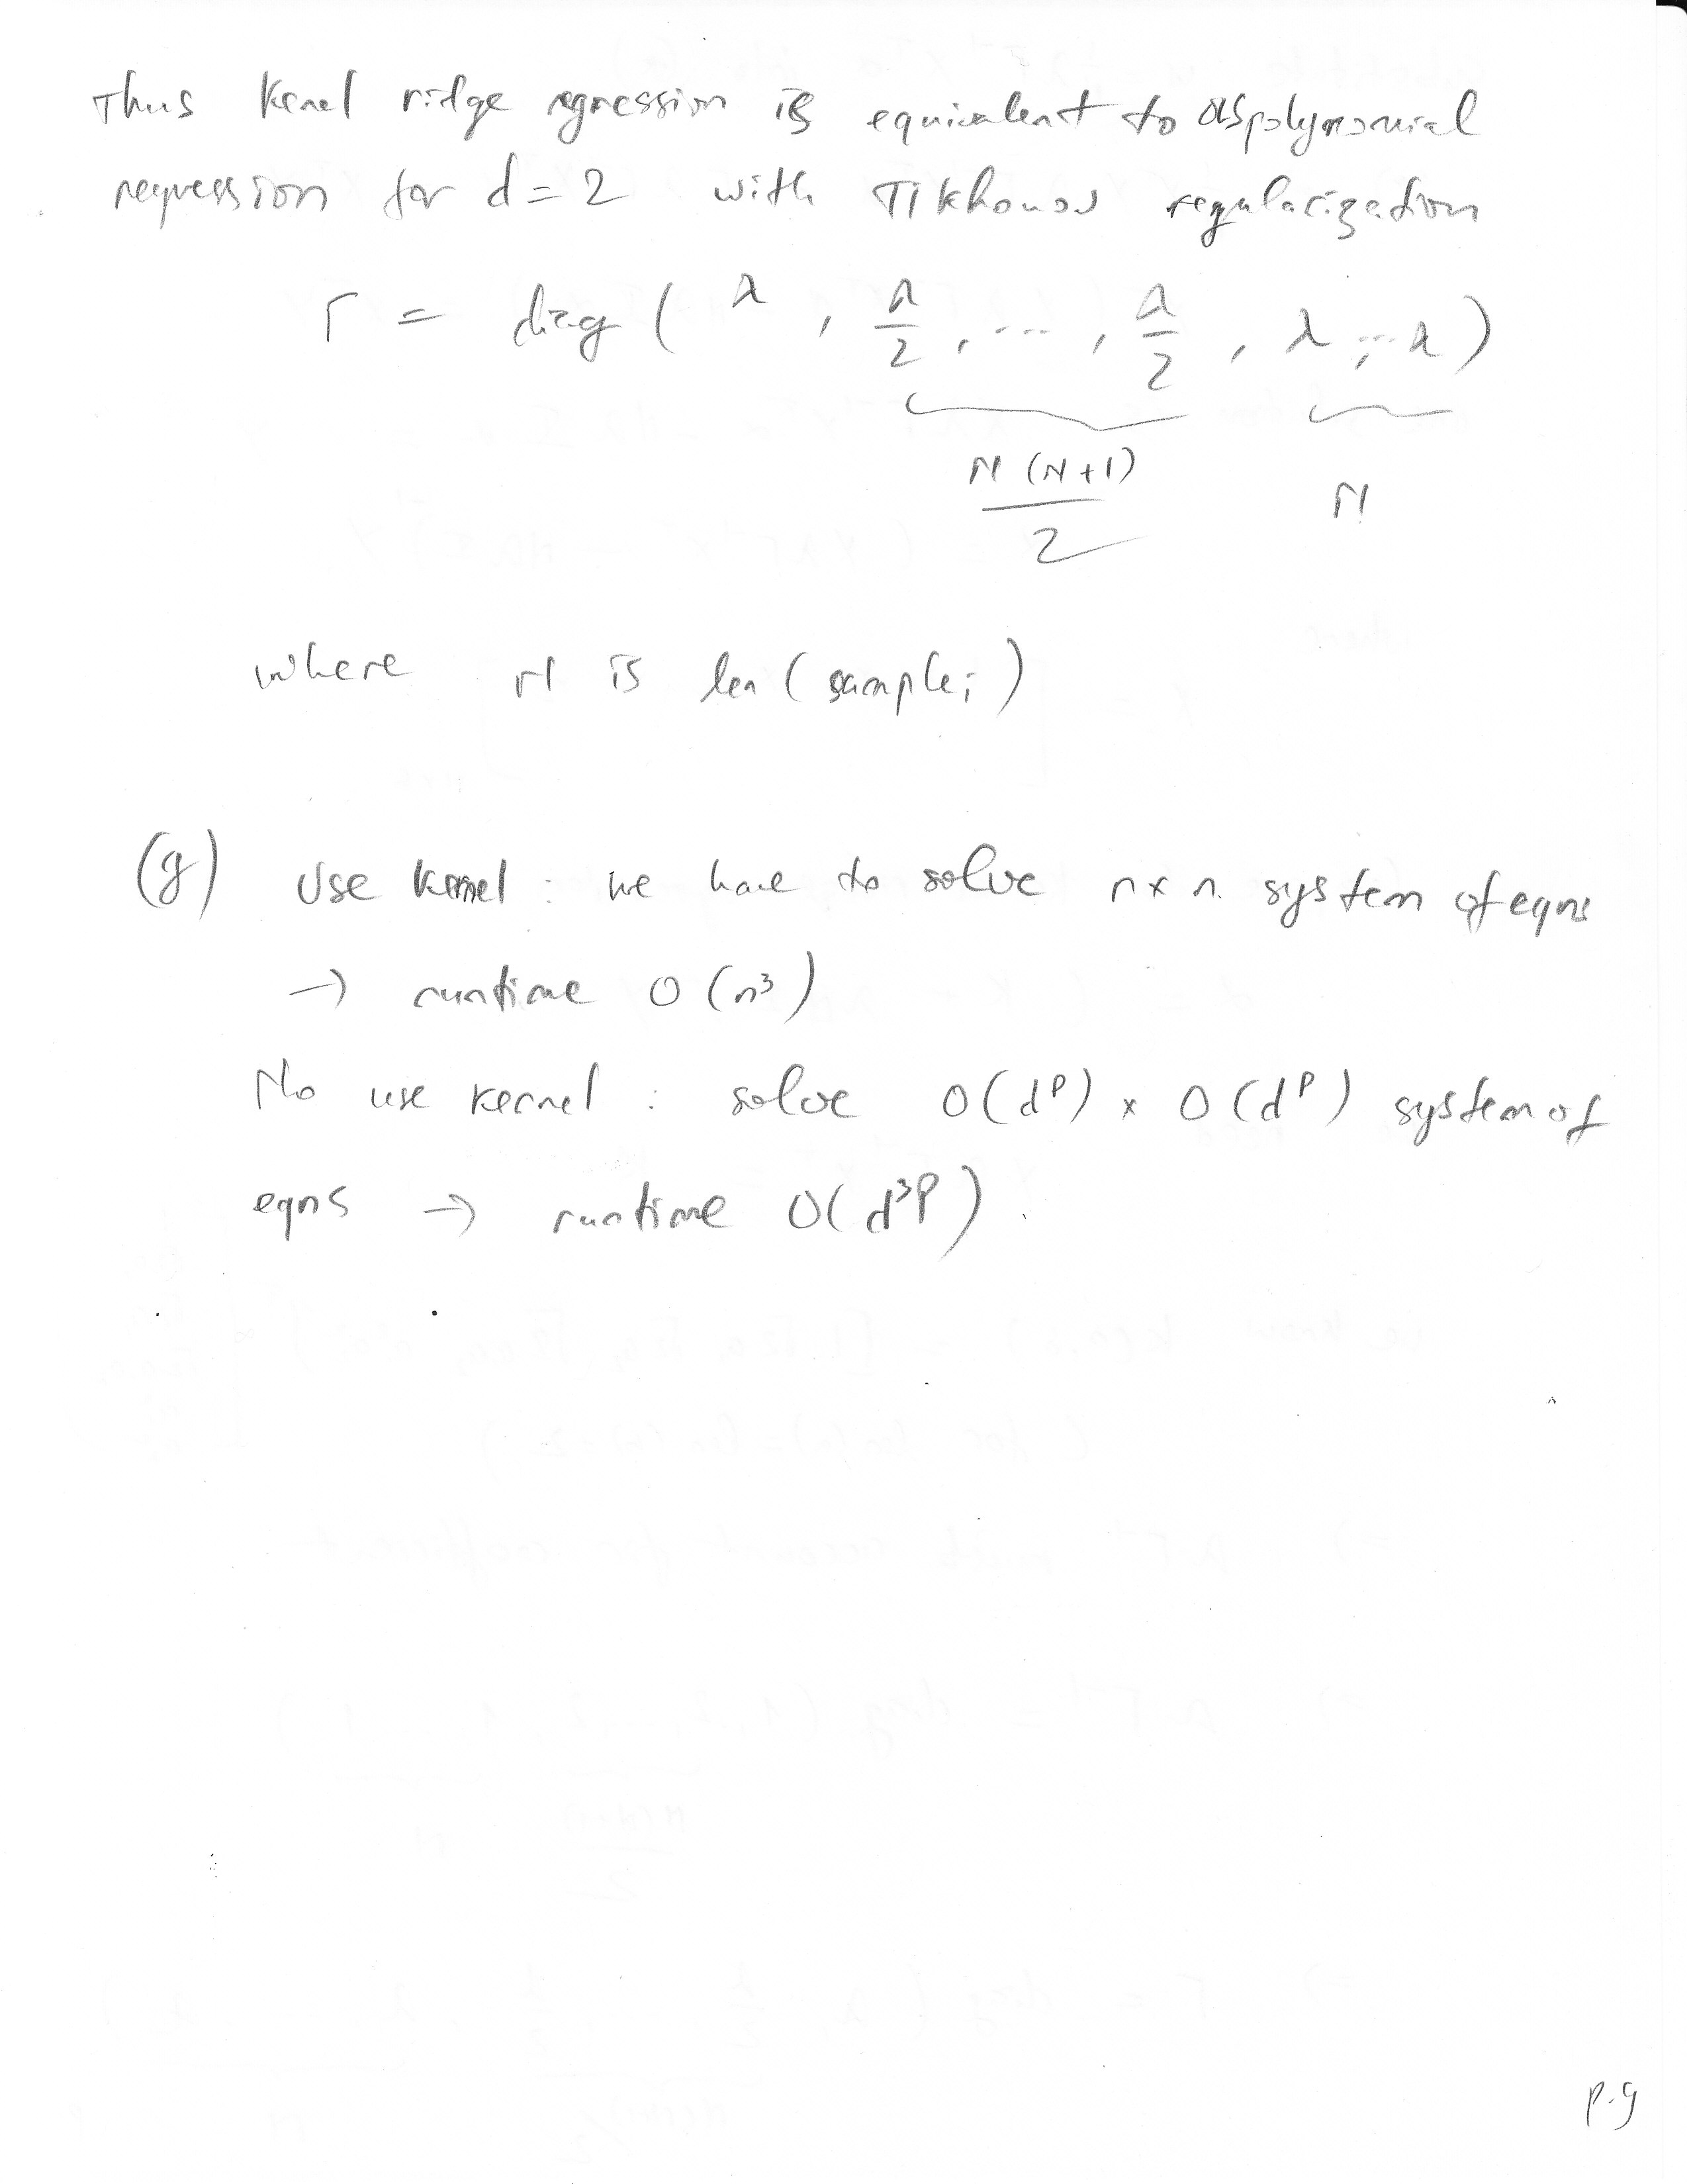 Thus kernel ridge regression is equivalent to polynomial
regression for d = 2 with Tikhonov regularization
Γ = diag ( λ , λ/2 , ... , λ/2 , λ , ... λ )
N (N+1) / 2   N
where N is len ( sample i )
(g) Use kernel : we have to solve n x n system of eqns
→ runtime O (n³)
No use kernel : solve O(d^p) x O(d^p) system of
eqns → runtime O(d^3p) .
p.9